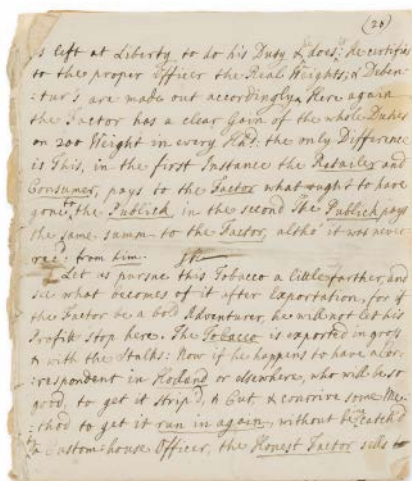 (20)
is left at Liberty to do his Duty & does it, he certifies
to the proper Officer the Real Weights, & Deben
:tur's are made out accordingly. Here again
the Factor has a clear Gain of the whole Duties
on 200 Weight in every Hhd. the only Difference
is This, in the first Instance the Retailer and
Consumer, pays to the Factor what ought to have
gone to the Publick, in the second The Publick pays
the same summ to the Factor, altho' it was never
rec'd from him.
Let us pursue this Tobacco a little farther, and
see what becomes of it after Exportation, for if
the Factor be a bold Adventurer, he will not let his
Profits stop here. The Tobacco is exported in gross
& with the Stalks: Now if he happens to have a Cor:
:respondent in Holland or elsewhere, who will be so
good, to get it strip'd, & Cut & contrive some Me
:thod to get it run in again, without being catch'd
by Custom-house Officer, the Honest Factor sells